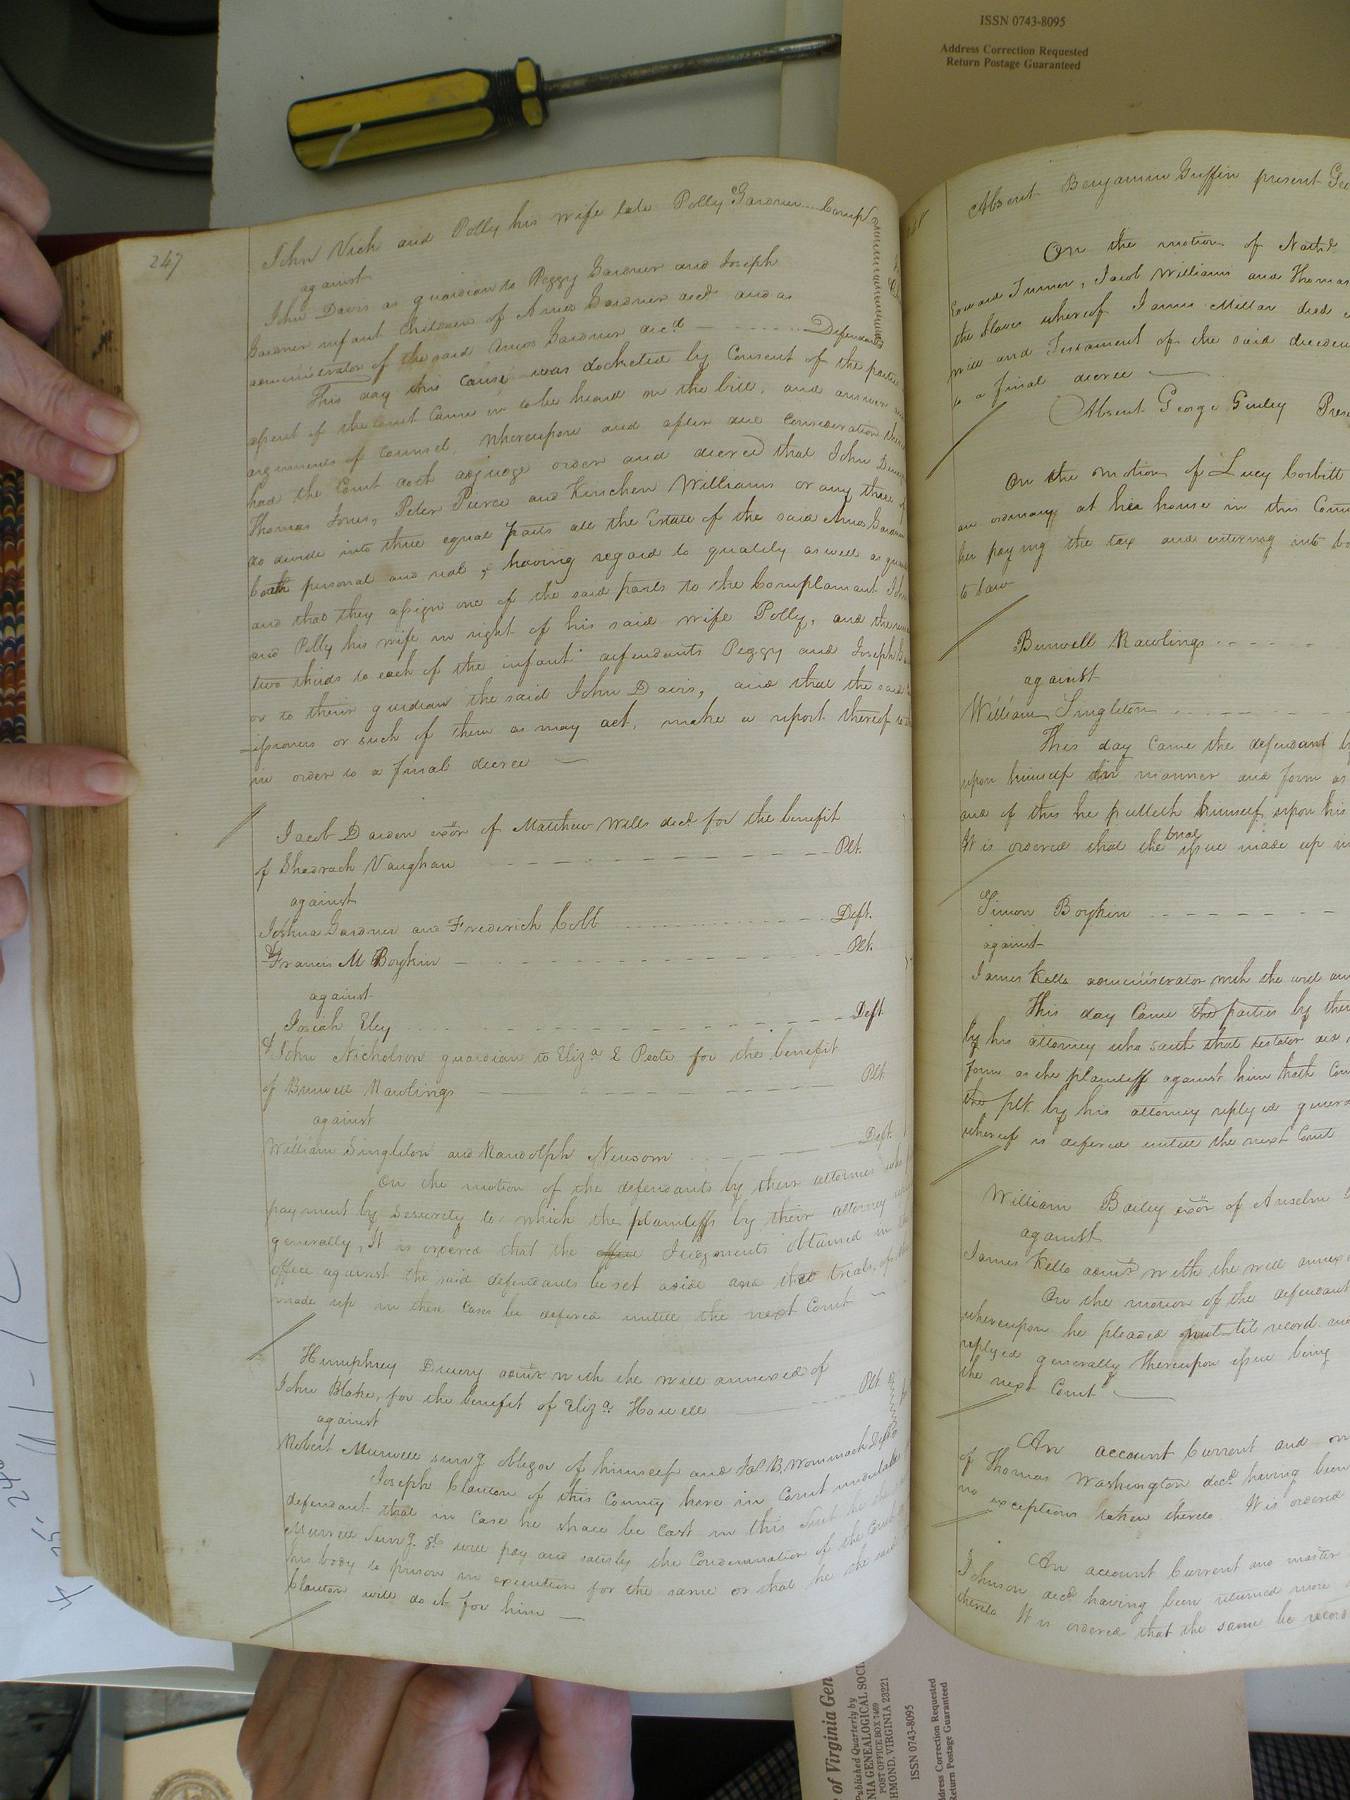 ISSN 0743-8095
Address Correction Requested
Return Postage Guaranteed
247
John Vick and Polly his wife late Polly Gardner Compl
against
John Davis as guardian to Peggy Gardner and Joseph
Gardner infant children of Amos Gardner decd and as
administrator of the said Amos Gardner decd Defendants
This day this cause was docketed by Consent of the parties
arguments of Counsel, Whereupon and after due consideration
had the Court doth adjudge order and decree that John
Thomas Jones, Peter Pierce and Kinchen Williams or any three of
do divide into three equal parts all the Estate of the said Amos Gardner
both personal and real, having regard to quality as well as
and that they assign one of the said parts to the Complainant John
and Polly his wife in right of his said wife Polly, and the
two thirds to each of the infant defendants Peggy and Joseph
or to their guardian the said John Davis, and that the said
issioners or such of them as may act, make a report thereof
in order to a final decree
Jacob Darden exor of Matthew Wills decd for the benefit
of Shadrach Vaughan Plt.
against
Joshua Gardner and Frederick Cobb Deft.
Francis M Boykin Plt.
against
Josiah Eley Deft
John Nicholson guardian to Eliza E Peete for the benefit
of Burwell Rawlings Plt.
against
William Singleton and Randolph Newsom Deft.
On the motion of the defendants by their attornies who
payment by security to which the plaintiffs by their attorney
generally, It is ordered that the office Judgments obtained in
office against the said defendants be set aside and that trials of
made up in these cases be defered untill the next Court
Humphrey Drewry admr with the will annexed of
John Blake, for the benefit of Eliza Howell Plt
against
Robert Murrell survg obligor of himself and Jas B. Wommack Deft
Joseph Claudon of this County here in Court undertakes
defendant that in case he shall be cast in this suit he the
Murrell survg &c will pay and satisfy the Condemnation of the Court
his body to prison in execution for the same or that he the said
will do it for him
Absent Benjamin Griffin present
On the motion of
Edward Turner, Jacob Williams and Thomas
the slaves whereof James Millar died
will and Testament of the said deceden
to a final decree
Absent George Gurley
On the motion of Lucy Corbitt
an ordinary at her house in this
her paying the tax and entering into
to Law
Burwell Rawlings
against
William Singleton
This day came the defendant
upon himself in manner and form as
and of this he putteth himself upon his
It is ordered that the trial issue made up
Simon Boykin
against
James Kello administrator with the will
This day came the parties by their
by his attorney who saith that testator
form as the plaintiff against him hath
the plt. by his attorney replyed
whereof is defered untill the next Court
William Bailey exor of Anselm
against
James Kello admr with the will annexed
On the motion of the defendant
whereupon he pleaded nul til record and
replyed generally thereupon issue being
the next Court
An account Current and
of Thomas Washington decd having been
no exceptions taken thereto It is ordered
An account Current and master
Johnson decd having been returned more
thereto It is ordered that the same be
of Virginia Gen
Published Quarterly by
NIA GENEALOGICAL SOCI
POST OFFICE BOX 7469
HMOND, VIRGINIA 23221
ISSN 0743-8095
ddress Correction Requested
Return Postage Guaranteed